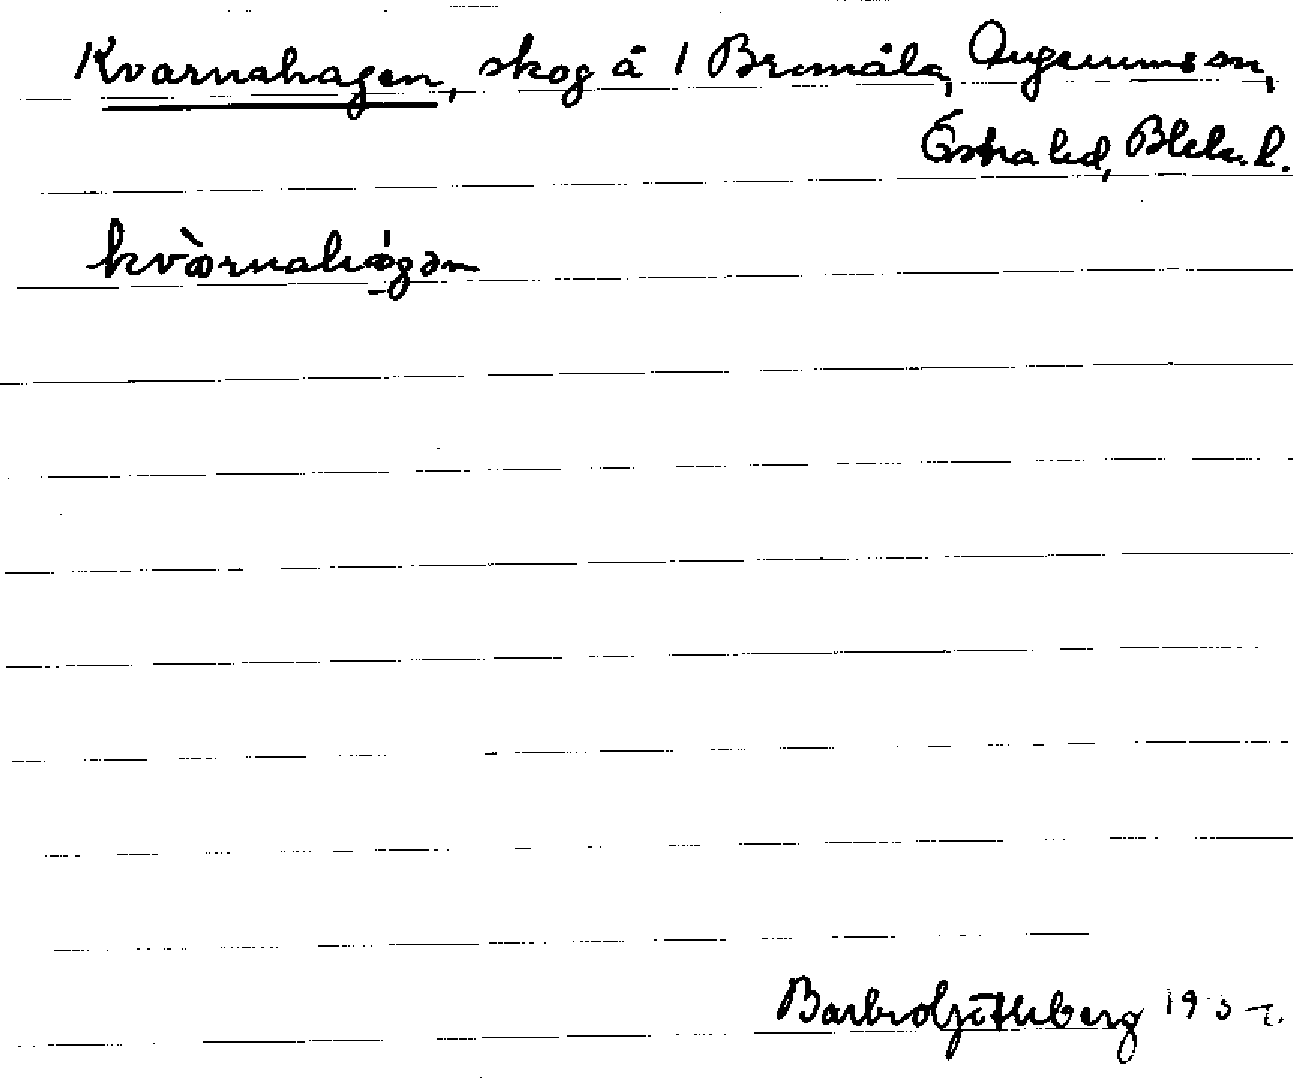 Kvarnahagen, skog å 1 Bromåla, Augerums sn,
Östra hd, Blek. l.
kvàrnahágən
Barbro Götheberg 19